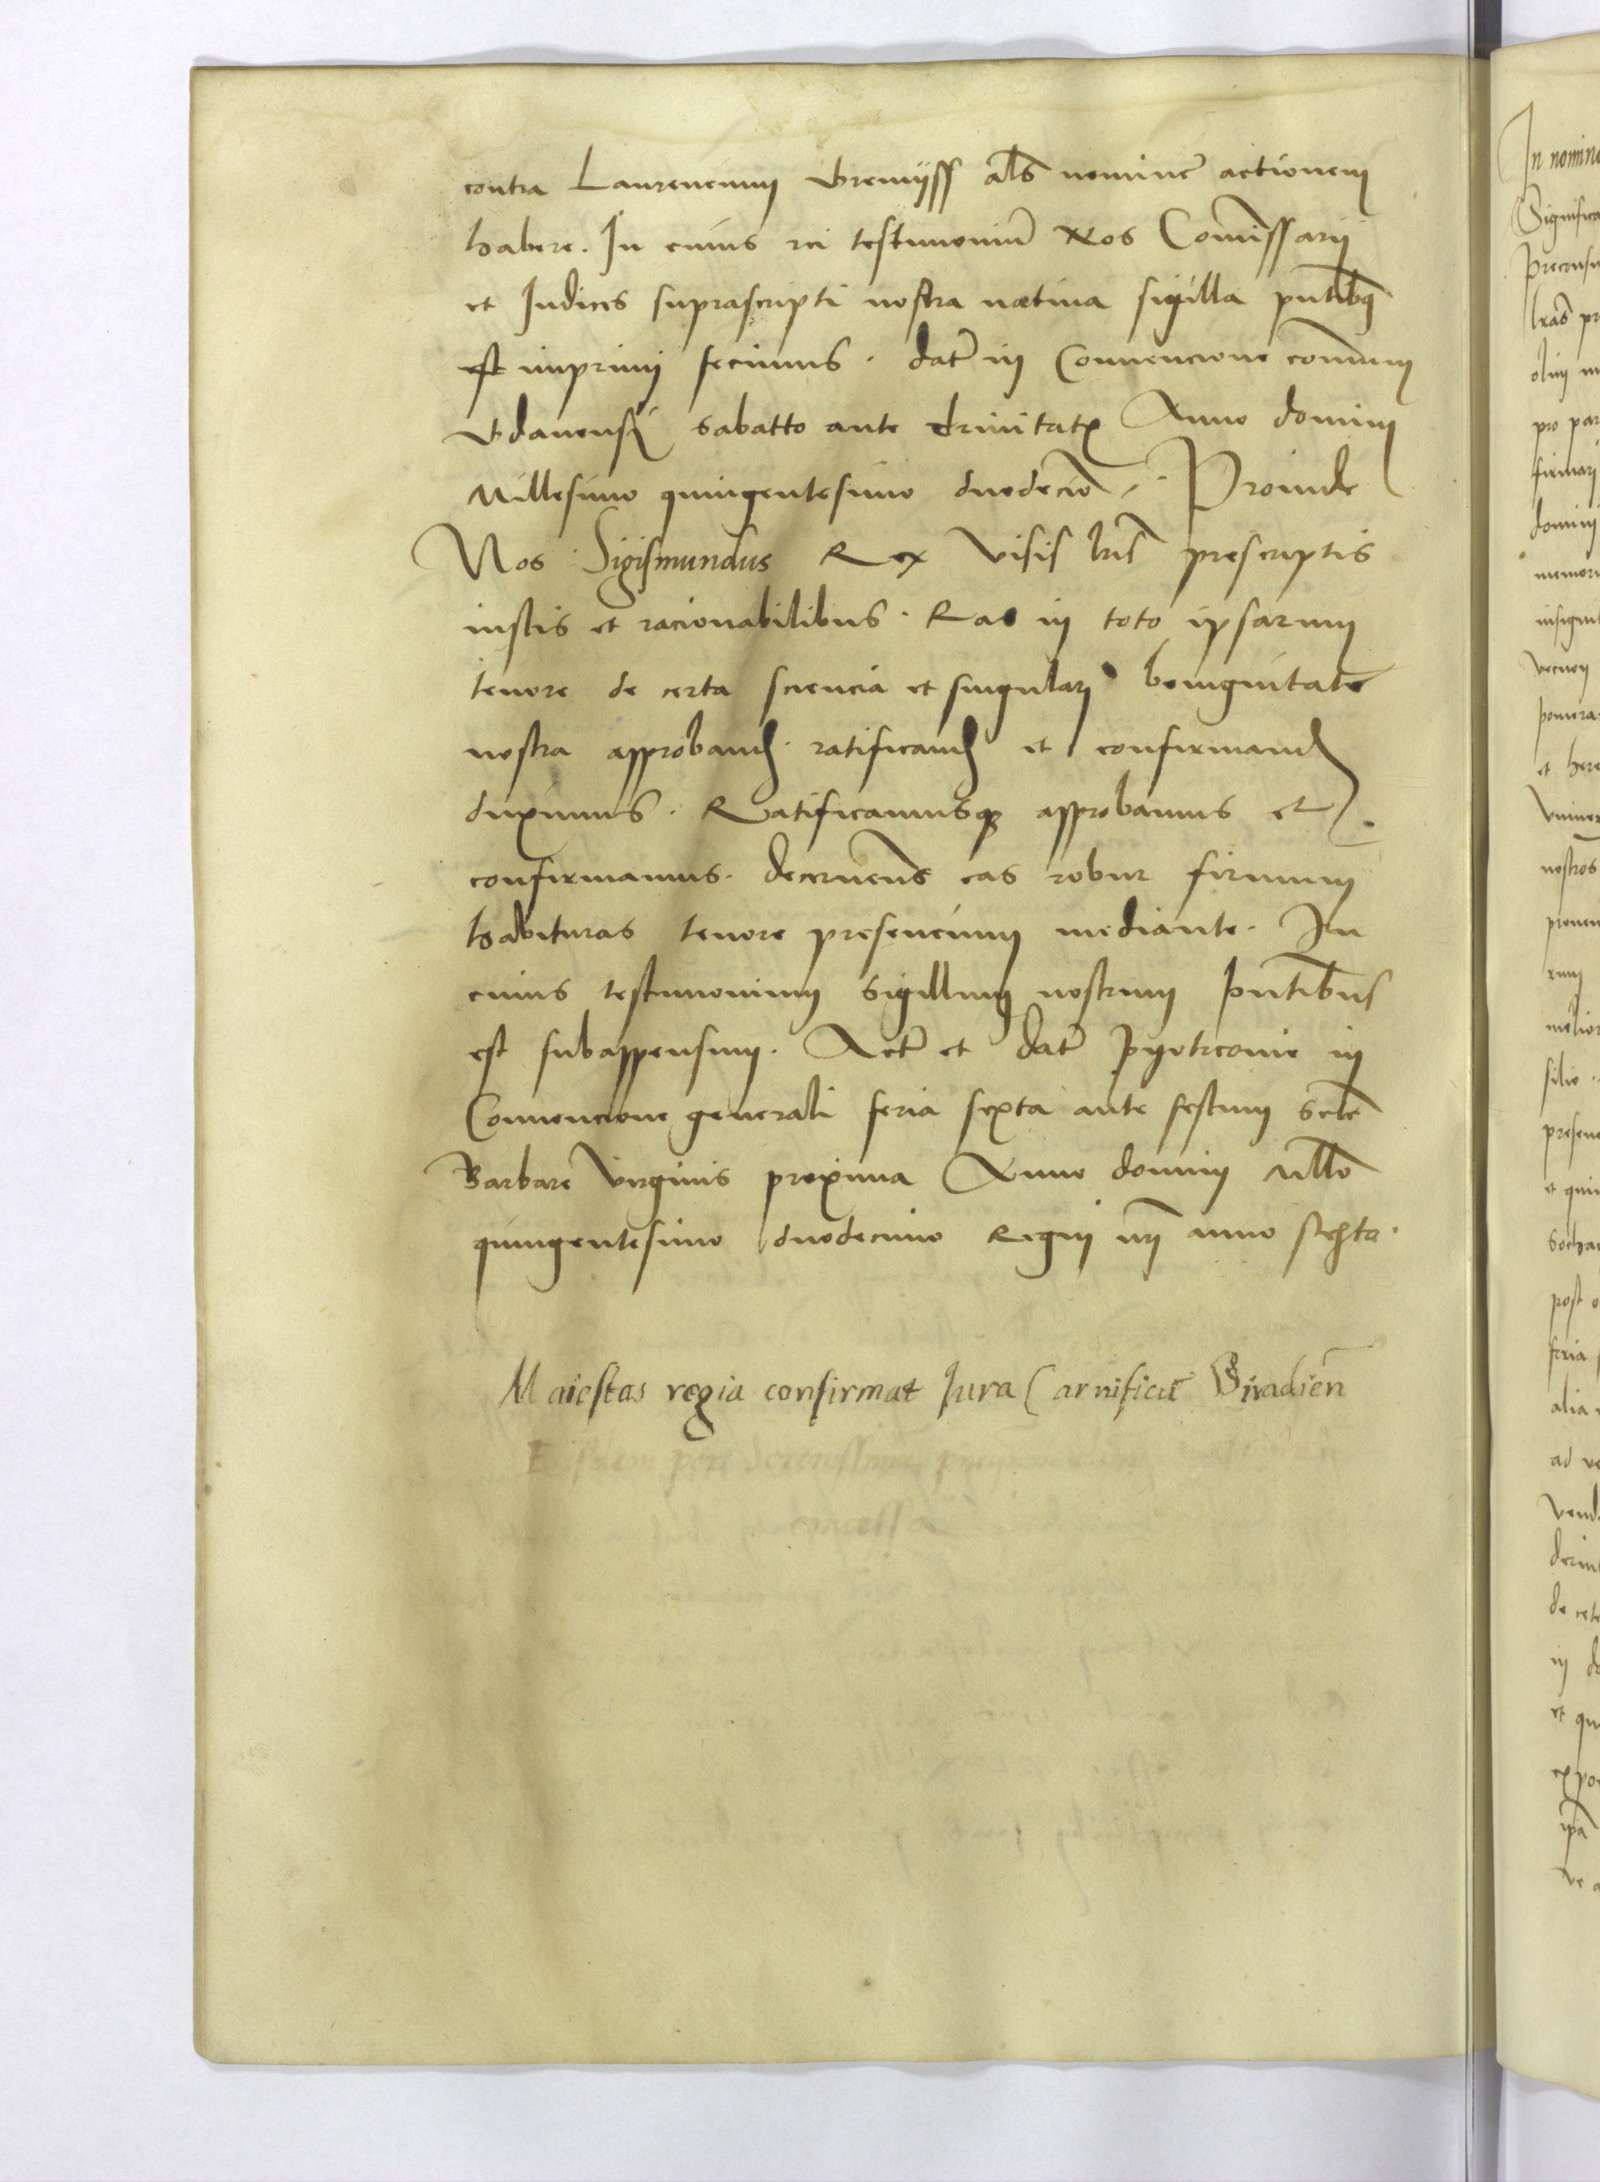 contra Laurencium Gremijss als nomine actionem
habere. In cuius rei testimoniu Nos Comissarij
et Iudices suprascripti nostra nativa sigilla pntibq
est imprimi fecimus. dat in Convencione comuni
Gdanensi sabatto ante trinitatis Anno domini
Millesimo quingentesimo duodecio. Proinde
Nos Sigismundus Rex visis lris prescriptis
iustis et racionabilibus. Eas in toto ipsarum
tenore de certa sciencia et singulari benignitate
nostra approband. ratificand et confirmand
duximus. Ratificamusq approbamus et
confirmamus. decernens eas robur firmum
habituras tenore presencium mediante. In
cuius testimonium Sigillum nostrum pntibus
est subappensum. Act et dat Pyotrcovie in
Convencione generali feria sexta ante festum scte
Barbare virginis proxima Anno domini Millo
quingentesimo duodecimo Regni nri anno sexto.
Maiestas regia confirmat Iura Carnificu Siradien
In nomin
Significa
Preconsu
lras pr
olim
pro par
firmari
domini
memori
insignit
et here
nostros
prenom
melior
filio
presen
et qui
post
feria
alia
ad ve
vend
de cet
in do
et qu
expo
ipa
ve a